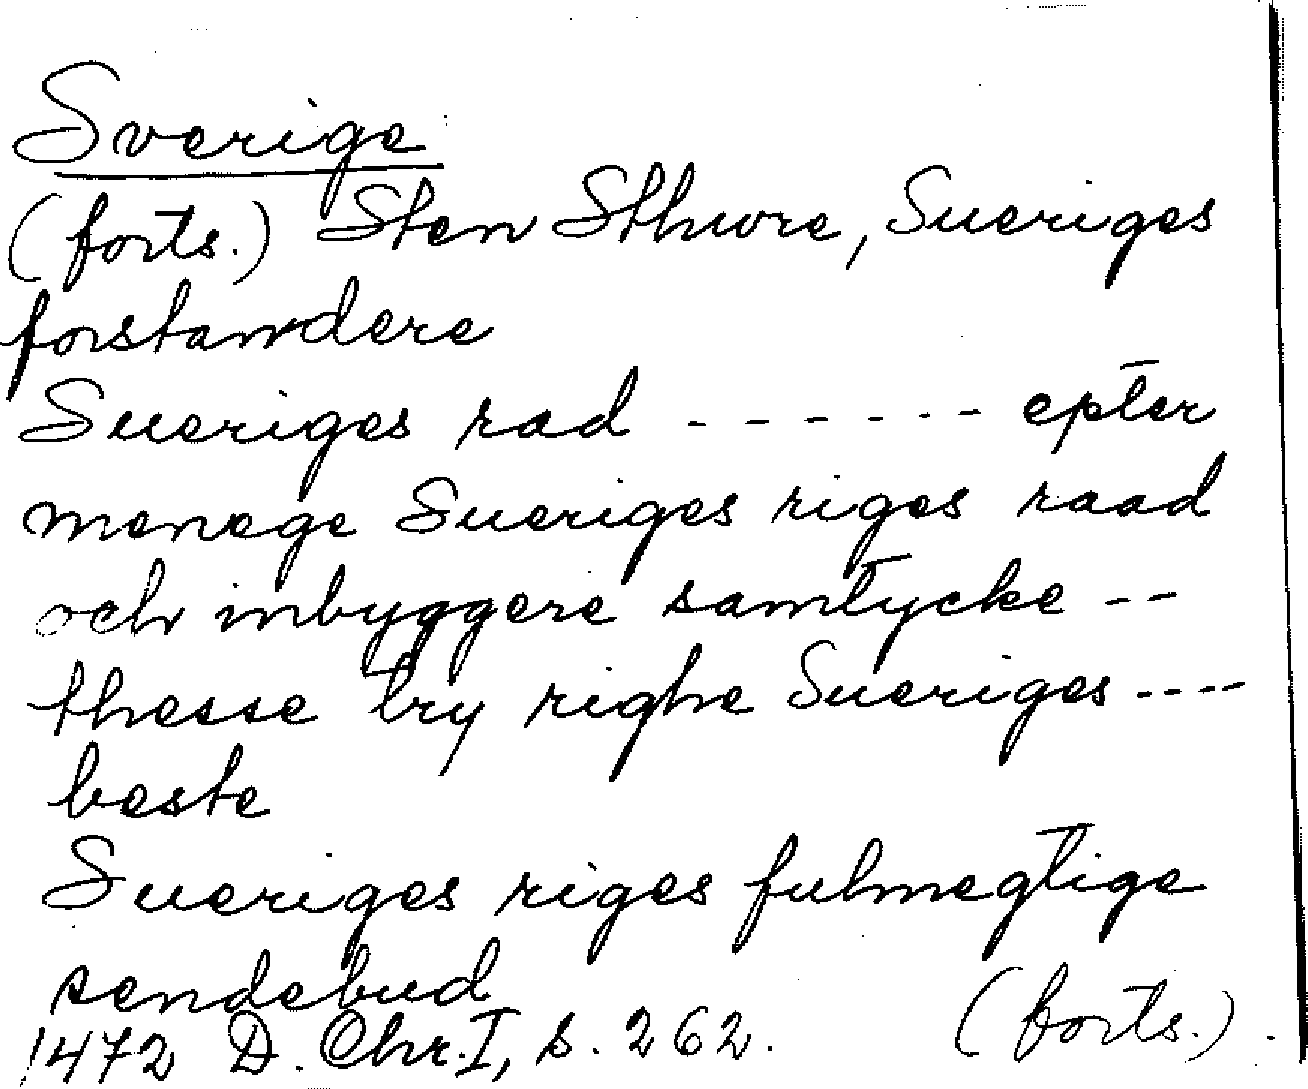 Sverige
(forts.) Sten Sthure, Sueriges
forstandere
Sueriges rad - - - - - - - epter
menege Sueriges riges raad
och inbyggere samtycke - -
thesse try righe Sueriges - - - -
beste
Sueriges riges fulmegtige
sendebud
1472 D. Chr. I, s. 262. (forts.)